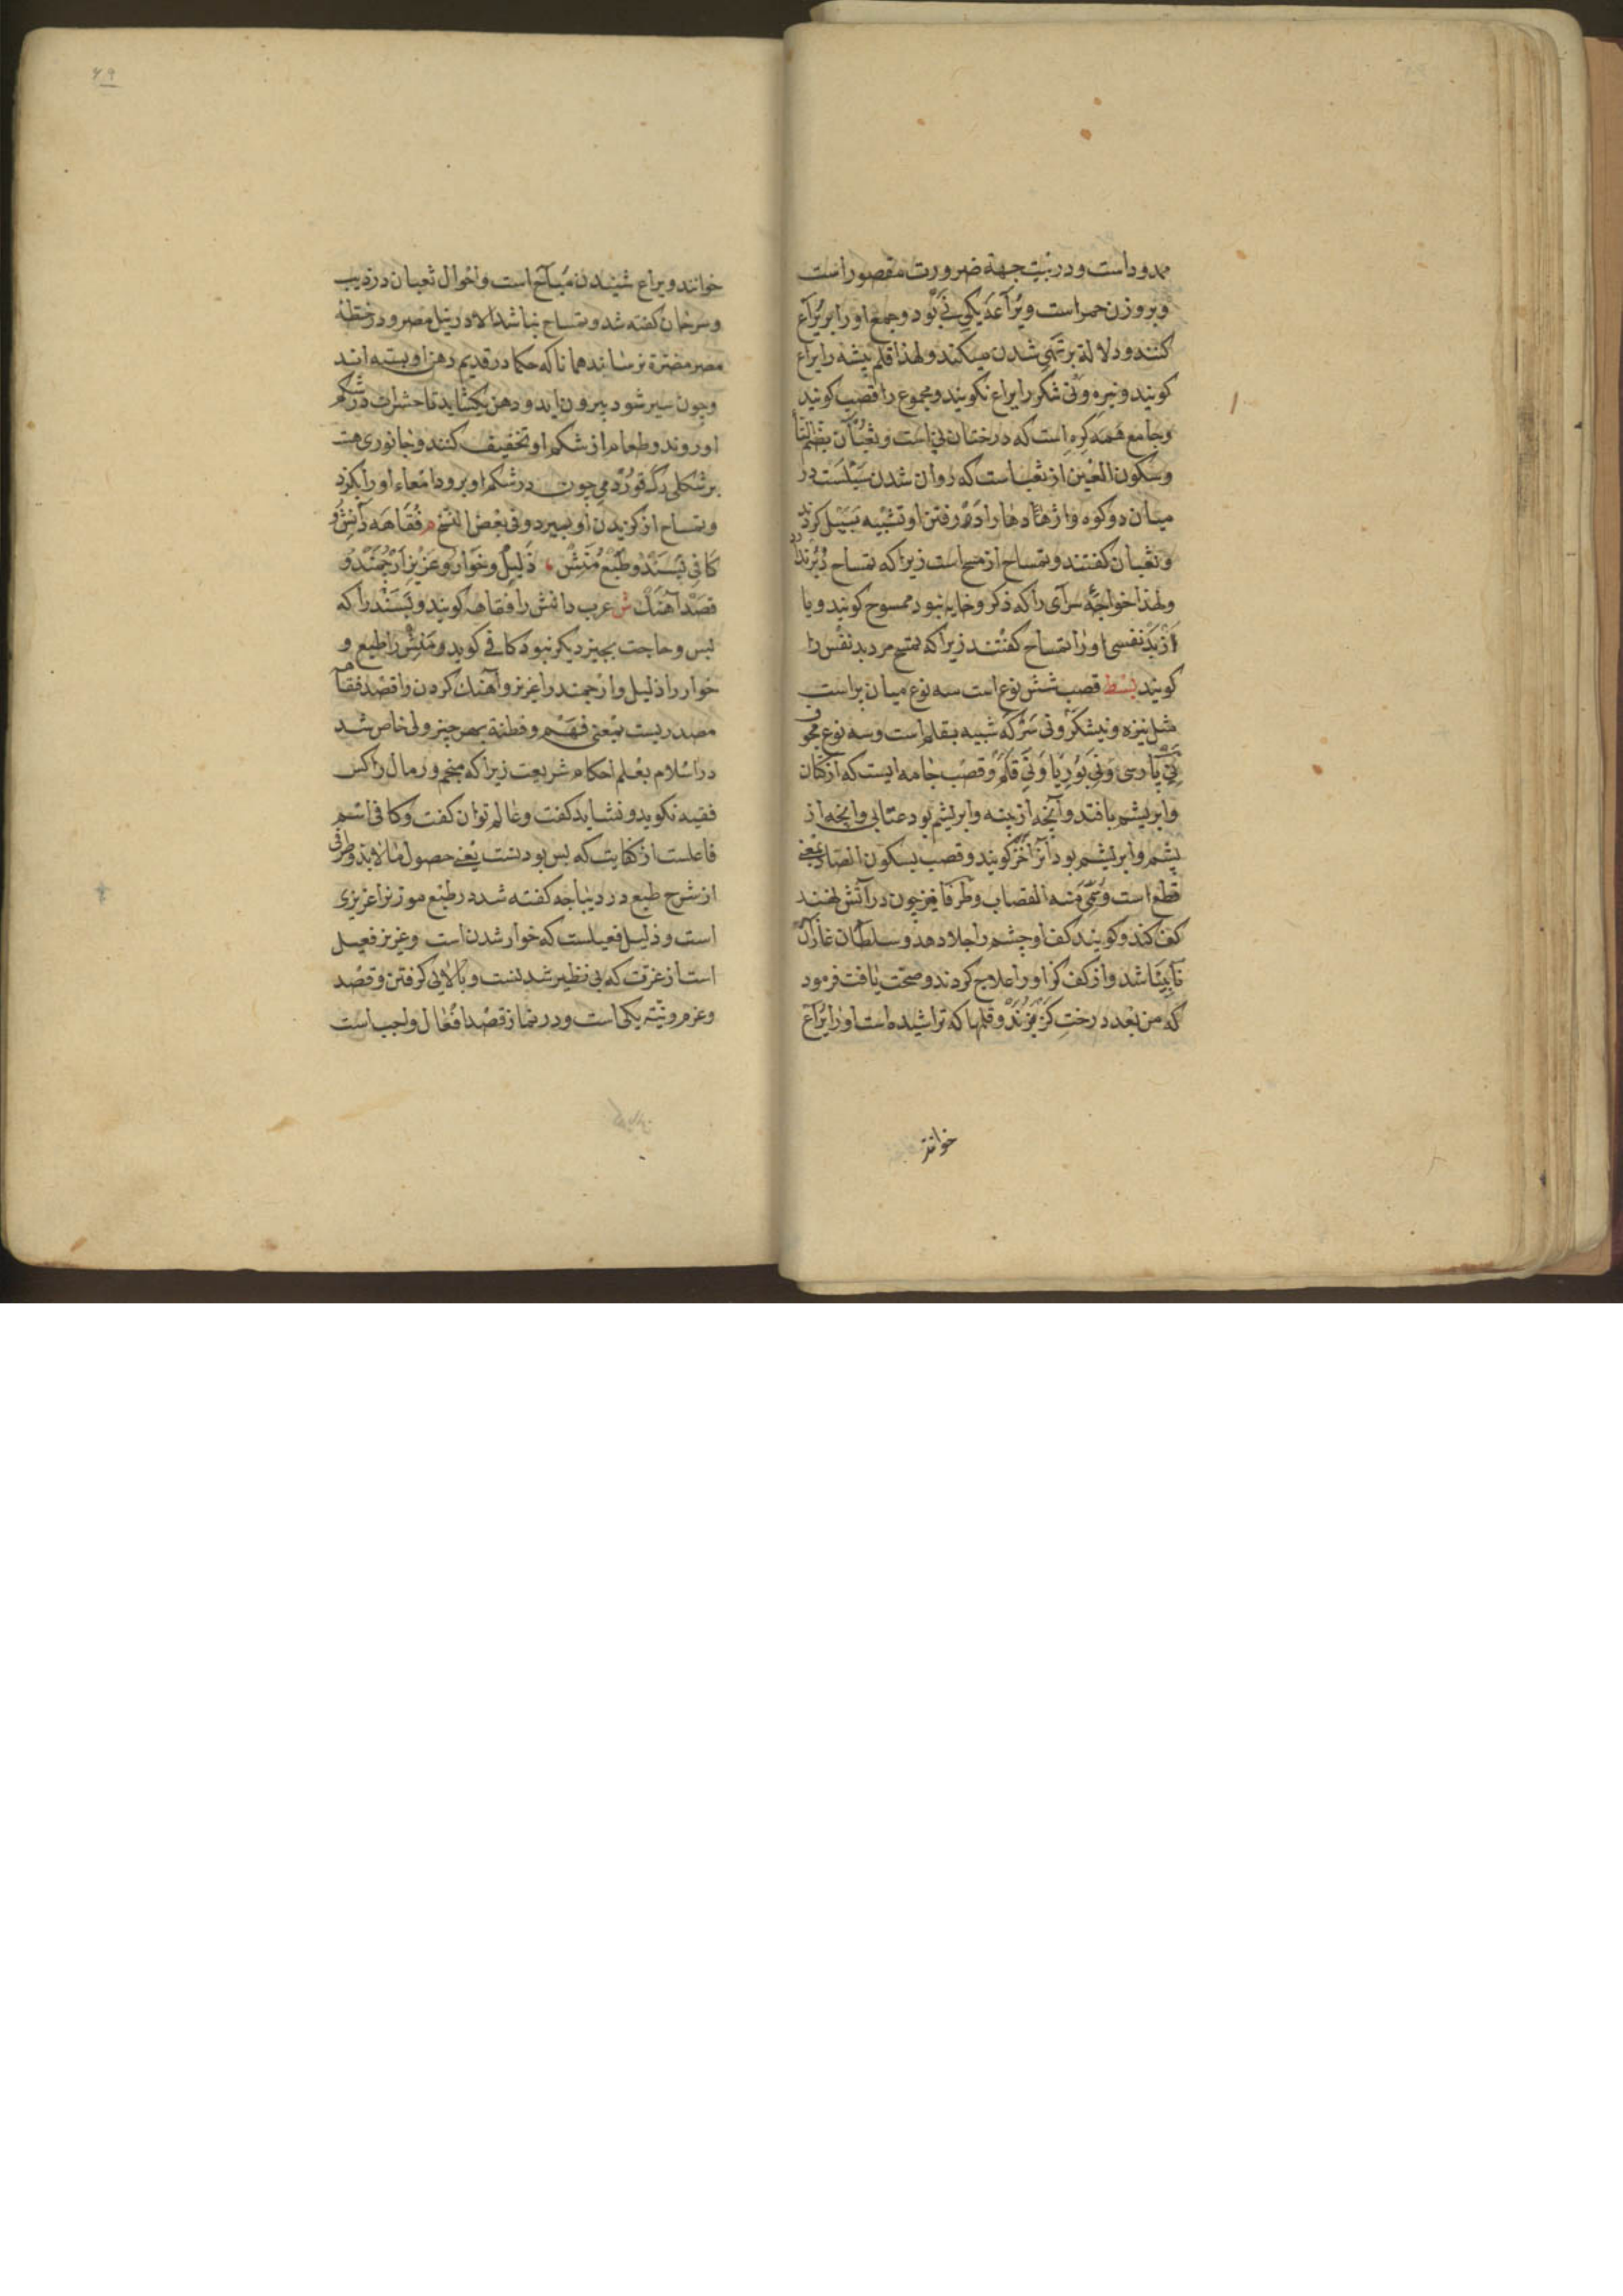 ممدوداست ودر بیت جهة ضرورت مقصوراست
وبروزن حمراست ویراعه یکی نی بود وجمع او را بر یراع
کنند ودلالة بر تهی شدن میکند ولهذا قلم نیشه را یراع
کویند ونیزه ونی شکر را یراع نکویند ومجموع را قصب کویند
وجامع همه کره است که درختان نی است وثعبان بضم الثا
وسکون العین از ثعب است که روان شدن سیلست در
میان دو کوه واژدهاء دمان را در رفتن او تشبیه بسیل کردند
وثعبان کفتند وتمساح از مسح است زیرا که تمساح دُبُر ندارد
ولهذا خواجه سرای را که ذکر وخایه نبود ممسوح کویند ویا
از بد نفسی او را تمساح کفتند زیرا که تمسح مرد بد نفس را
کویند بسط قصب شش نوع است سه نوع میان پر است
مثل نیزه ونیشکر ونی سر که شبیه بقلم است وسه نوع مجوف
نی پارسی ونی بوریا ونی قلم وقصب جامه ایست که از کتان
وابریشم بافند وآنچه از پنبه وابریشم بود عتابی وانچه از
پشم وابریشم بود آنرا خز کویند وقصب بسکون الصاد یعنی
قطع است وسمی منه القصاب وطرفا یعنی چون در آتش نهند
کف کند وکویند کف او چشم را جلا دهد وسلطان غازان
نابینا شد واز کف کز او را علاج کردند وصحت یافت فرمود
که من بعد درخت کز نبرند وقلمها که تراشیده است او را یراع
خوانند
۴۹
خوانند ویراع شنیدن مباح است واحوال ثعبان در ذیب
وسرحان کفته شد وتمساح نباشد الا در نیل مصر ودر خطه
مصر مضرة نرساند همانا که حکما در قدیم دهن او بسته اند
وچون سیر شود بیرون اید ودهن بکشاید تا حشرات در شکم
او روند وطعام از شکم او تخفیف کنند وجانوری هست
بر شکل دک قورد می چون در شکم او برود امعاء او را بکزد
وتمساح از کزیدن او بمیرد وفی بعض النسخ م فقاهه دانش و
کافی بسند وطبع منش ذلیل وخوار وعزیز ارجمند و
قصد آهنک ش عرب دانش را فقاهه کویند وبسند را که
بس وحاجت بچیز دیکر نبود کافی کوید ومنش را طبع و
خوار را ذلیل وارجمند را عزیز وآهنک کردن را قصد فقاهه
مصدریست بمعنی فهم وفطنة بهر چیز ولی خاص شد
در اسلام بعلم احکام شریعت زیرا که منجم ورمال را کس
فقیه نکوید ونشاید کفت وعالم توان کفت وکافی اسم
فاعلست از کفایت که بس بودنست یعنی حصول ما لابد وطرفی
از شرح طبع در دیباجه کفته شد در طبع موز نرا غریزی
است وذلیل فعیلست که خوار شدن است وعزیز فعیل
است از عزت که بی نظیر شدنست وبالایی کرفتن وقصد
وعزم ونیّه یکی است ودر نماز قصد افعال واجب است